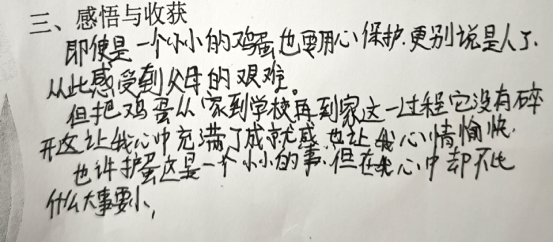 三、感悟与收获
即使是一个小小的鸡蛋也要用心保护.更别说是人了.
从此感受到父母的艰难。
但把鸡蛋从家到学校再到家这一过程它没有碎
开这让我心中充满了成就感.也让我心情愉快.
也许护蛋这是一个小小的事.但在我心中却不比
什么大事要小,